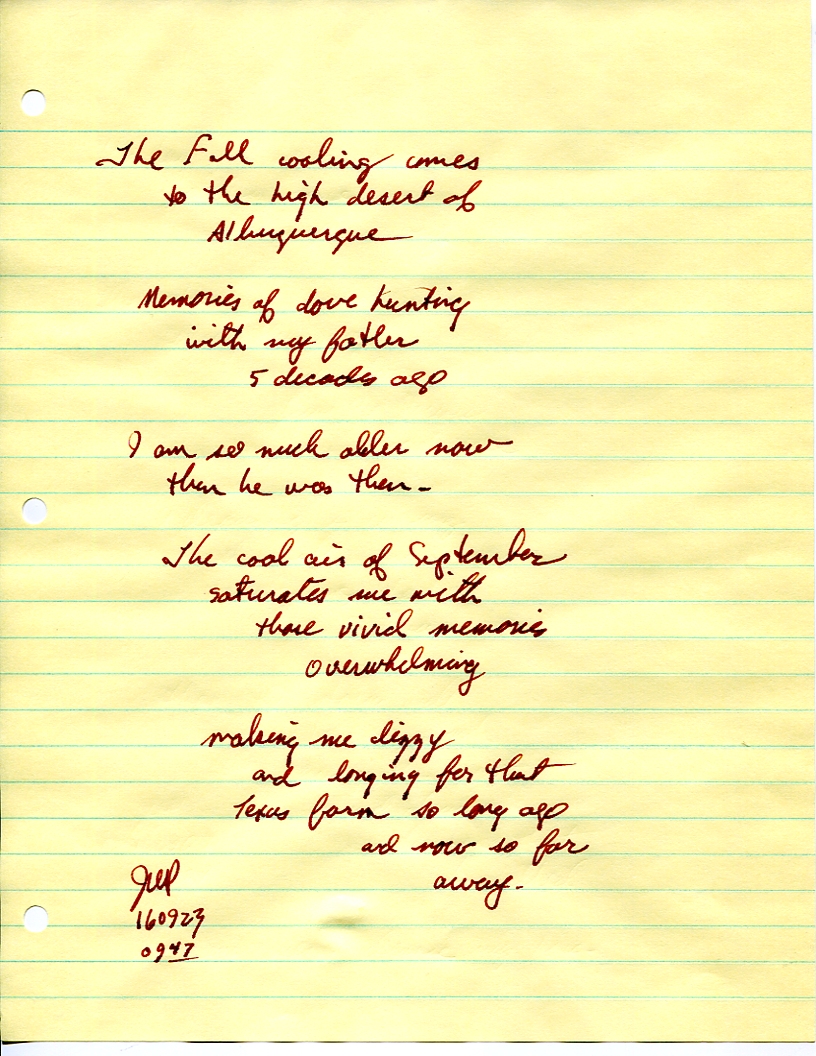 The Fall cooling comes
to the high desert of
Albuquerque
Memories of dove hunting
with my father
5 decades ago
I am so much older now
than he was then-
The cool air of September
saturates me with
those vivid memories
overwhelming
making me dizzy
and longing for that
Texas farm so long ago
and now so far
away-
160923
0947